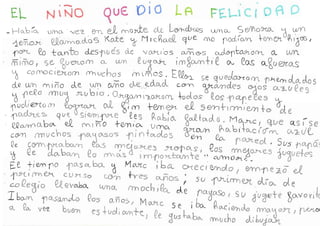 EL NIÑO QUE DIO LA FELICIDAD
- Había una vez en el norte de Londres una Señora y un
señor llamados Kate y Michael que no podían tener hijos,
por lo tanto después de varios años adoptaron a un
niño, se fueron a un lugar infantil a las afueras
y conocieron muchos niños. Ellos se quedaron prendados
de un niño de un año de edad con grandes ojos azules
y pelo muy rubio. Organizaron todos los papeles y
pudieron lograr al fin tener el sentimiento de
padres que siempre les había faltado. Marc, que así se
llamaba el niño tenía una gran habitación azul
con muchos payasos pintados en la pared. Sus papás
le compraban las mejores ropas, los mejores juguetes
y le daban lo más importante "amor".
El tiempo pasaba y Marc iba creciendo, empezó el
primer curso con tres años, su primer día de
colegio llevaba una mochila de payaso, su juguete favorito
Iban pasando los años, Marc se iba haciendo mayor, pero
a la vez bien estudiante, le gustaba mucho dibujar